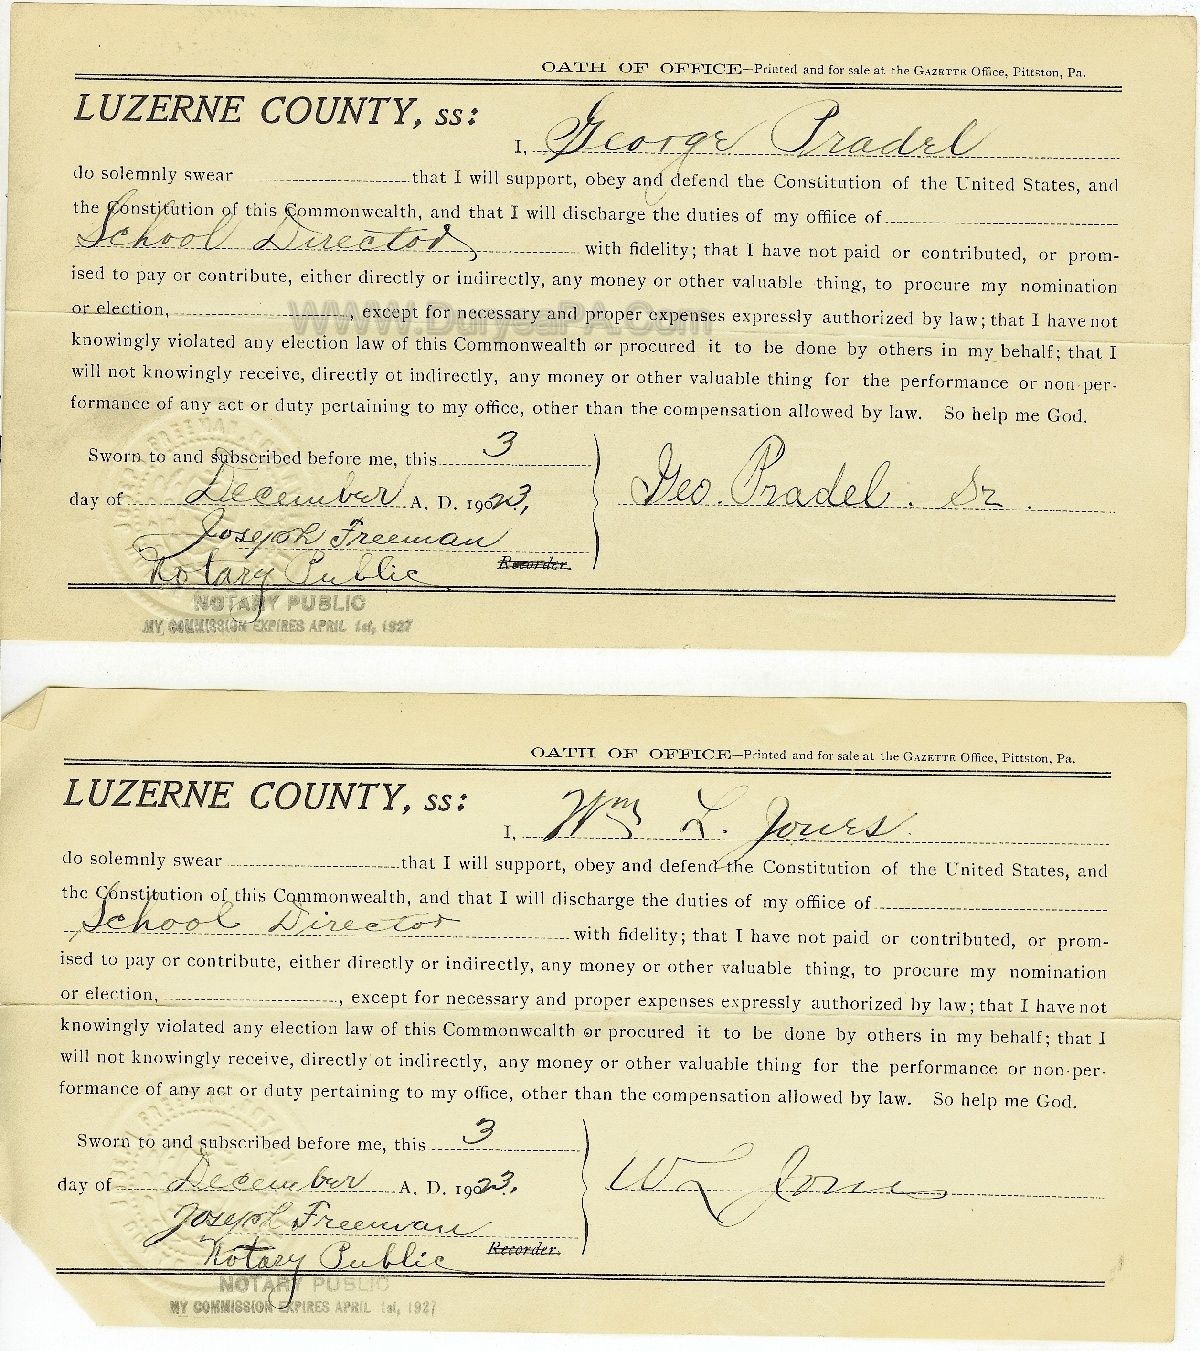 OATH OF OFFICE—Printed and for sale at the GAZETTE Office, Pittston, Pa.
LUZERNE COUNTY, ss:
I, George Pradel
do solemnly swear that I will support, obey and defend the Constitution of the United States, and
the Constitution of this Commonwealth, and that I will discharge the duties of my office of
School Director with fidelity; that I have not paid or contributed, or prom-
ised to pay or contribute, either directly or indirectly, any money or other valuable thing, to procure my nomination
or election, , except for necessary and proper expenses expressly authorized by law; that I have not
WWW.DuryeaPA.Com
knowingly violated any election law of this Commonwealth or procured it to be done by others in my behalf; that I
will not knowingly receive, directly ot indirectly, any money or other valuable thing for the performance or non-per-
formance of any act or duty pertaining to my office, other than the compensation allowed by law. So help me God.
Sworn to and subscribed before me, this 3
day of December A. D. 1923,
Geo. Pradel. Sr.
Joseph Freeman
Notary Public Recorder.
NOTARY PUBLIC
MY COMMISSION EXPIRES APRIL 1st, 1927
OATH OF OFFICE—Printed and for sale at the GAZETTE Office, Pittston, Pa.
LUZERNE COUNTY, ss:
I, Wm L. Jones
do solemnly swear that I will support, obey and defend the Constitution of the United States, and
the Constitution of this Commonwealth, and that I will discharge the duties of my office of
School Director with fidelity; that I have not paid or contributed, or prom-
ised to pay or contribute, either directly or indirectly, any money or other valuable thing, to procure my nomination
or election, , except for necessary and proper expenses expressly authorized by law; that I have not
knowingly violated any election law of this Commonwealth or procured it to be done by others in my behalf; that I
will not knowingly receive, directly ot indirectly, any money or other valuable thing for the performance or non-per-
formance of any act or duty pertaining to my office, other than the compensation allowed by law. So help me God.
Sworn to and subscribed before me, this 3
day of December A. D. 1923,
W L Jones
Joseph Freeman
Notary Public Recorder.
NOTARY PUBLIC
MY COMMISSION EXPIRES APRIL 1st, 1927